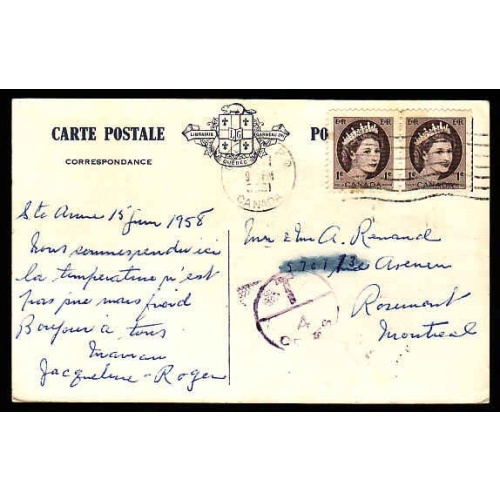 CARTE POSTALE
PO
CORRESPONDANCE
LIBRAIRIE GARNEAU
LG
QUEBEC
CANADA
E II R E II R
1¢ 1¢
CANADA
E II R E II R
1¢ 1¢
CANADA
Ste Anne 15 juin 1958
Nous sommes rendu ici
la température n'est
pas pire mais froid
Bonjour à tous
Maman
Jacqueline - Roger
Mr & Mme A. Renaud
5761 13e Avenue
Rosemont
Montreal
T
4